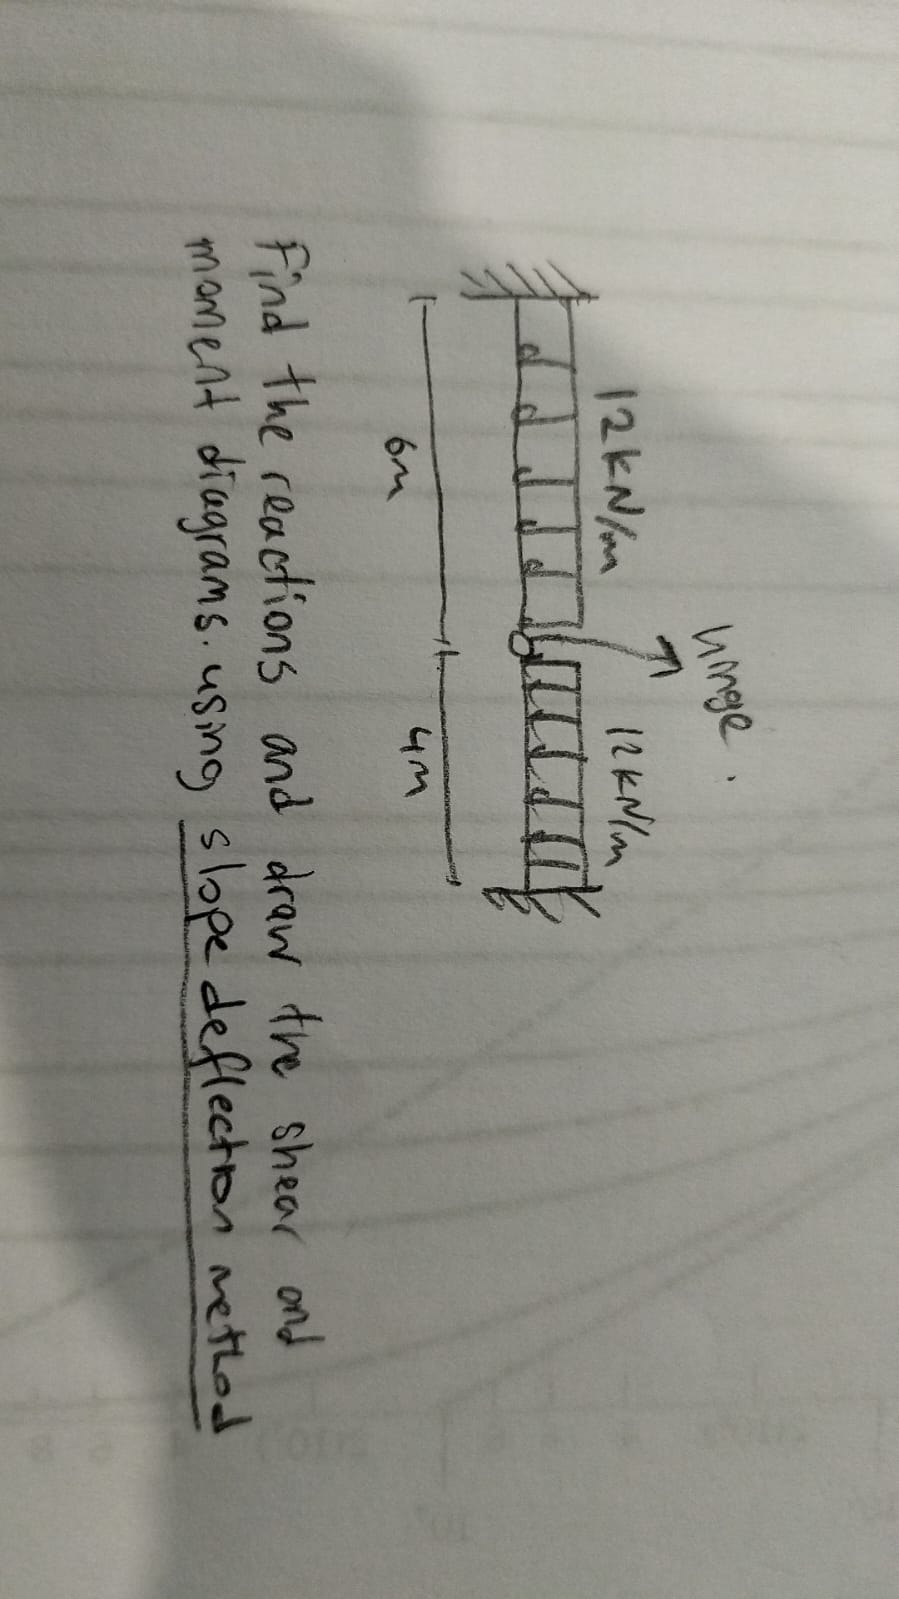 hinge.
12kN/m 12kN/m
6m 4m
Find the reactions and draw the shear and
moment diagrams. using slope deflection method